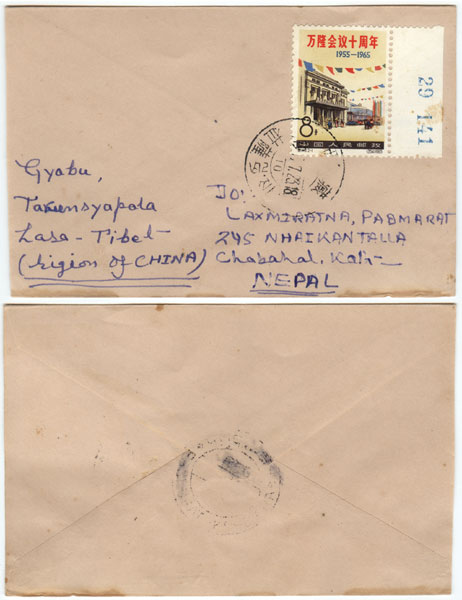 万隆会议十周年
1955—1965
8分
中国人民邮政
29 141
Gyabu,
Takunsyapala
Lasa - Tibet
(Rigion of CHINA)
To:
LAXMIRATNA, PADMARAT
245 NHAIKANTALLA
Chabahal, Kat-
NEPAL